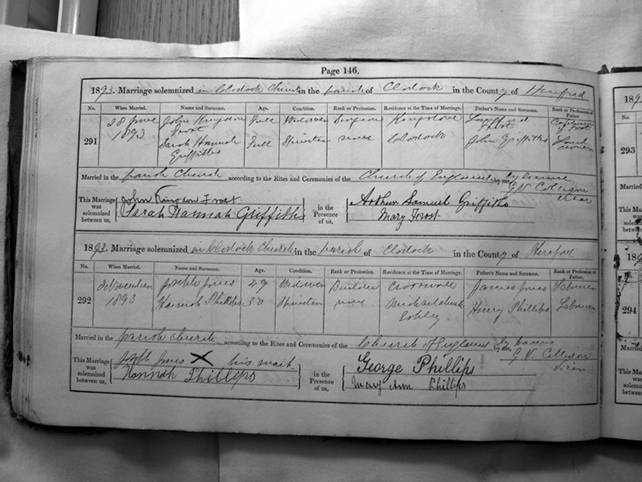 Page 146.
1893. Marriage solemnized in Clodock Church in the parish of Clodock in the County of Hereford
No. When Married. Name and Surname. Age. Condition. Rank or Profession. Residence at the Time of Marriage. Father's Name and Surname. Rank or Profession of Father.
291 28 June 1893 John Kingdon Frost Full Widower Surgeon Frost
Sarah Hannah Griffiths Full Spinster Clodock John Griffiths Land owner
Married in the parish Church according to the Rites and Ceremonies of the Church of England by licence by me,
This Marriage was solemnized between us, John Kingdon Frost
Sarah Hannah Griffiths
in the Presence of us, Arthur Samuel Griffiths
Mary Frost
1893. Marriage solemnized in Clodock Church in the parish of Clodock in the County of Hereford
No. When Married. Name and Surname. Age. Condition. Rank or Profession. Residence at the Time of Marriage. Father's Name and Surname. Rank or Profession of Father.
292 November 1893 Joseph Jones 49 Widower Builder James Jones Labourer
Hannah Phillips 50 Spinster Michaelchurch Eskley Henry Phillips Labourer
Married in the parish church according to the Rites and Ceremonies of the Church of England by banns by me,
Vicar
This Marriage was solemnized between us, Joseph Jones X his mark
Hannah Phillips
in the Presence of us, George Phillips
Mary Ann Phillips
189
No.
293
Married
This Marriage was
189
No.
294